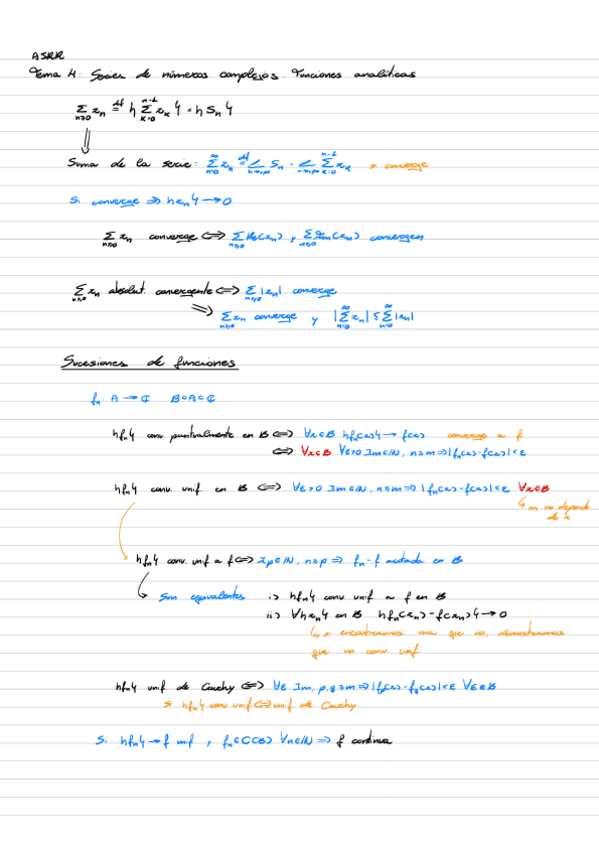 ASRR
Tema 4: Series de números complejos. Funciones analíticas
∑_{n≥0} z_n ≝ {∑_{k=0}^{n-1} z_k} = {S_n}
⇓
Suma de la serie: ∑_{n=0}^{∞} z_n ≝ lim_{n→∞} S_n = lim_{n→∞} ∑_{k=0}^{n-1} z_k si converge
Si converge ⇒ {z_n} → 0
∑_{n≥0} z_n converge ⇔ ∑_{n≥0} Re(z_n) y ∑_{n≥0} Im(z_n) convergen
∑_{n≥0} z_n absolut. convergente ⇔ ∑_{n≥0} |z_n| converge
⇒ ∑_{n≥0} z_n converge y |∑_{n=0}^{∞} z_n| ≤ ∑_{n=0}^{∞} |z_n|
Sucesiones de funciones
f_n: A → ℂ B⊂A⊂ℂ
{f_n} conv puntualmente en B ⇔ ∀z∈B {f_n(z)} → f(z) converge a f
⇔ ∀z∈B ∀ε>0 ∃m∈ℕ, n≥m ⇒ |f_n(z)-f(z)|<ε
{f_n} conv. unif en B ⇔ ∀ε>0 ∃m∈ℕ, n≥m ⇒ |f_n(z)-f(z)|<ε ∀z∈B
↳ m no depende
de z
{f_n} conv unif a f ⇔ ∃p∈ℕ, n≥p ⇒ f_n-f acotada en B
↳ Son equivalentes i) {f_n} conv unif a f en B
ii) ∀{z_n} en B {f_n(z_n)-f(z_n)} → 0
↳ si encontramos una que no, demostramos
que no conv unif
{f_n} unif de Cauchy ⇔ ∀ε ∃m, p,q≥m ⇒ |f_p(z)-f_q(z)|<ε ∀z∈B
Si {f_n} conv unif ⇔ unif de Cauchy
Si {f_n} → f unif y f_n∈C(B) ∀n∈ℕ ⇒ f continua